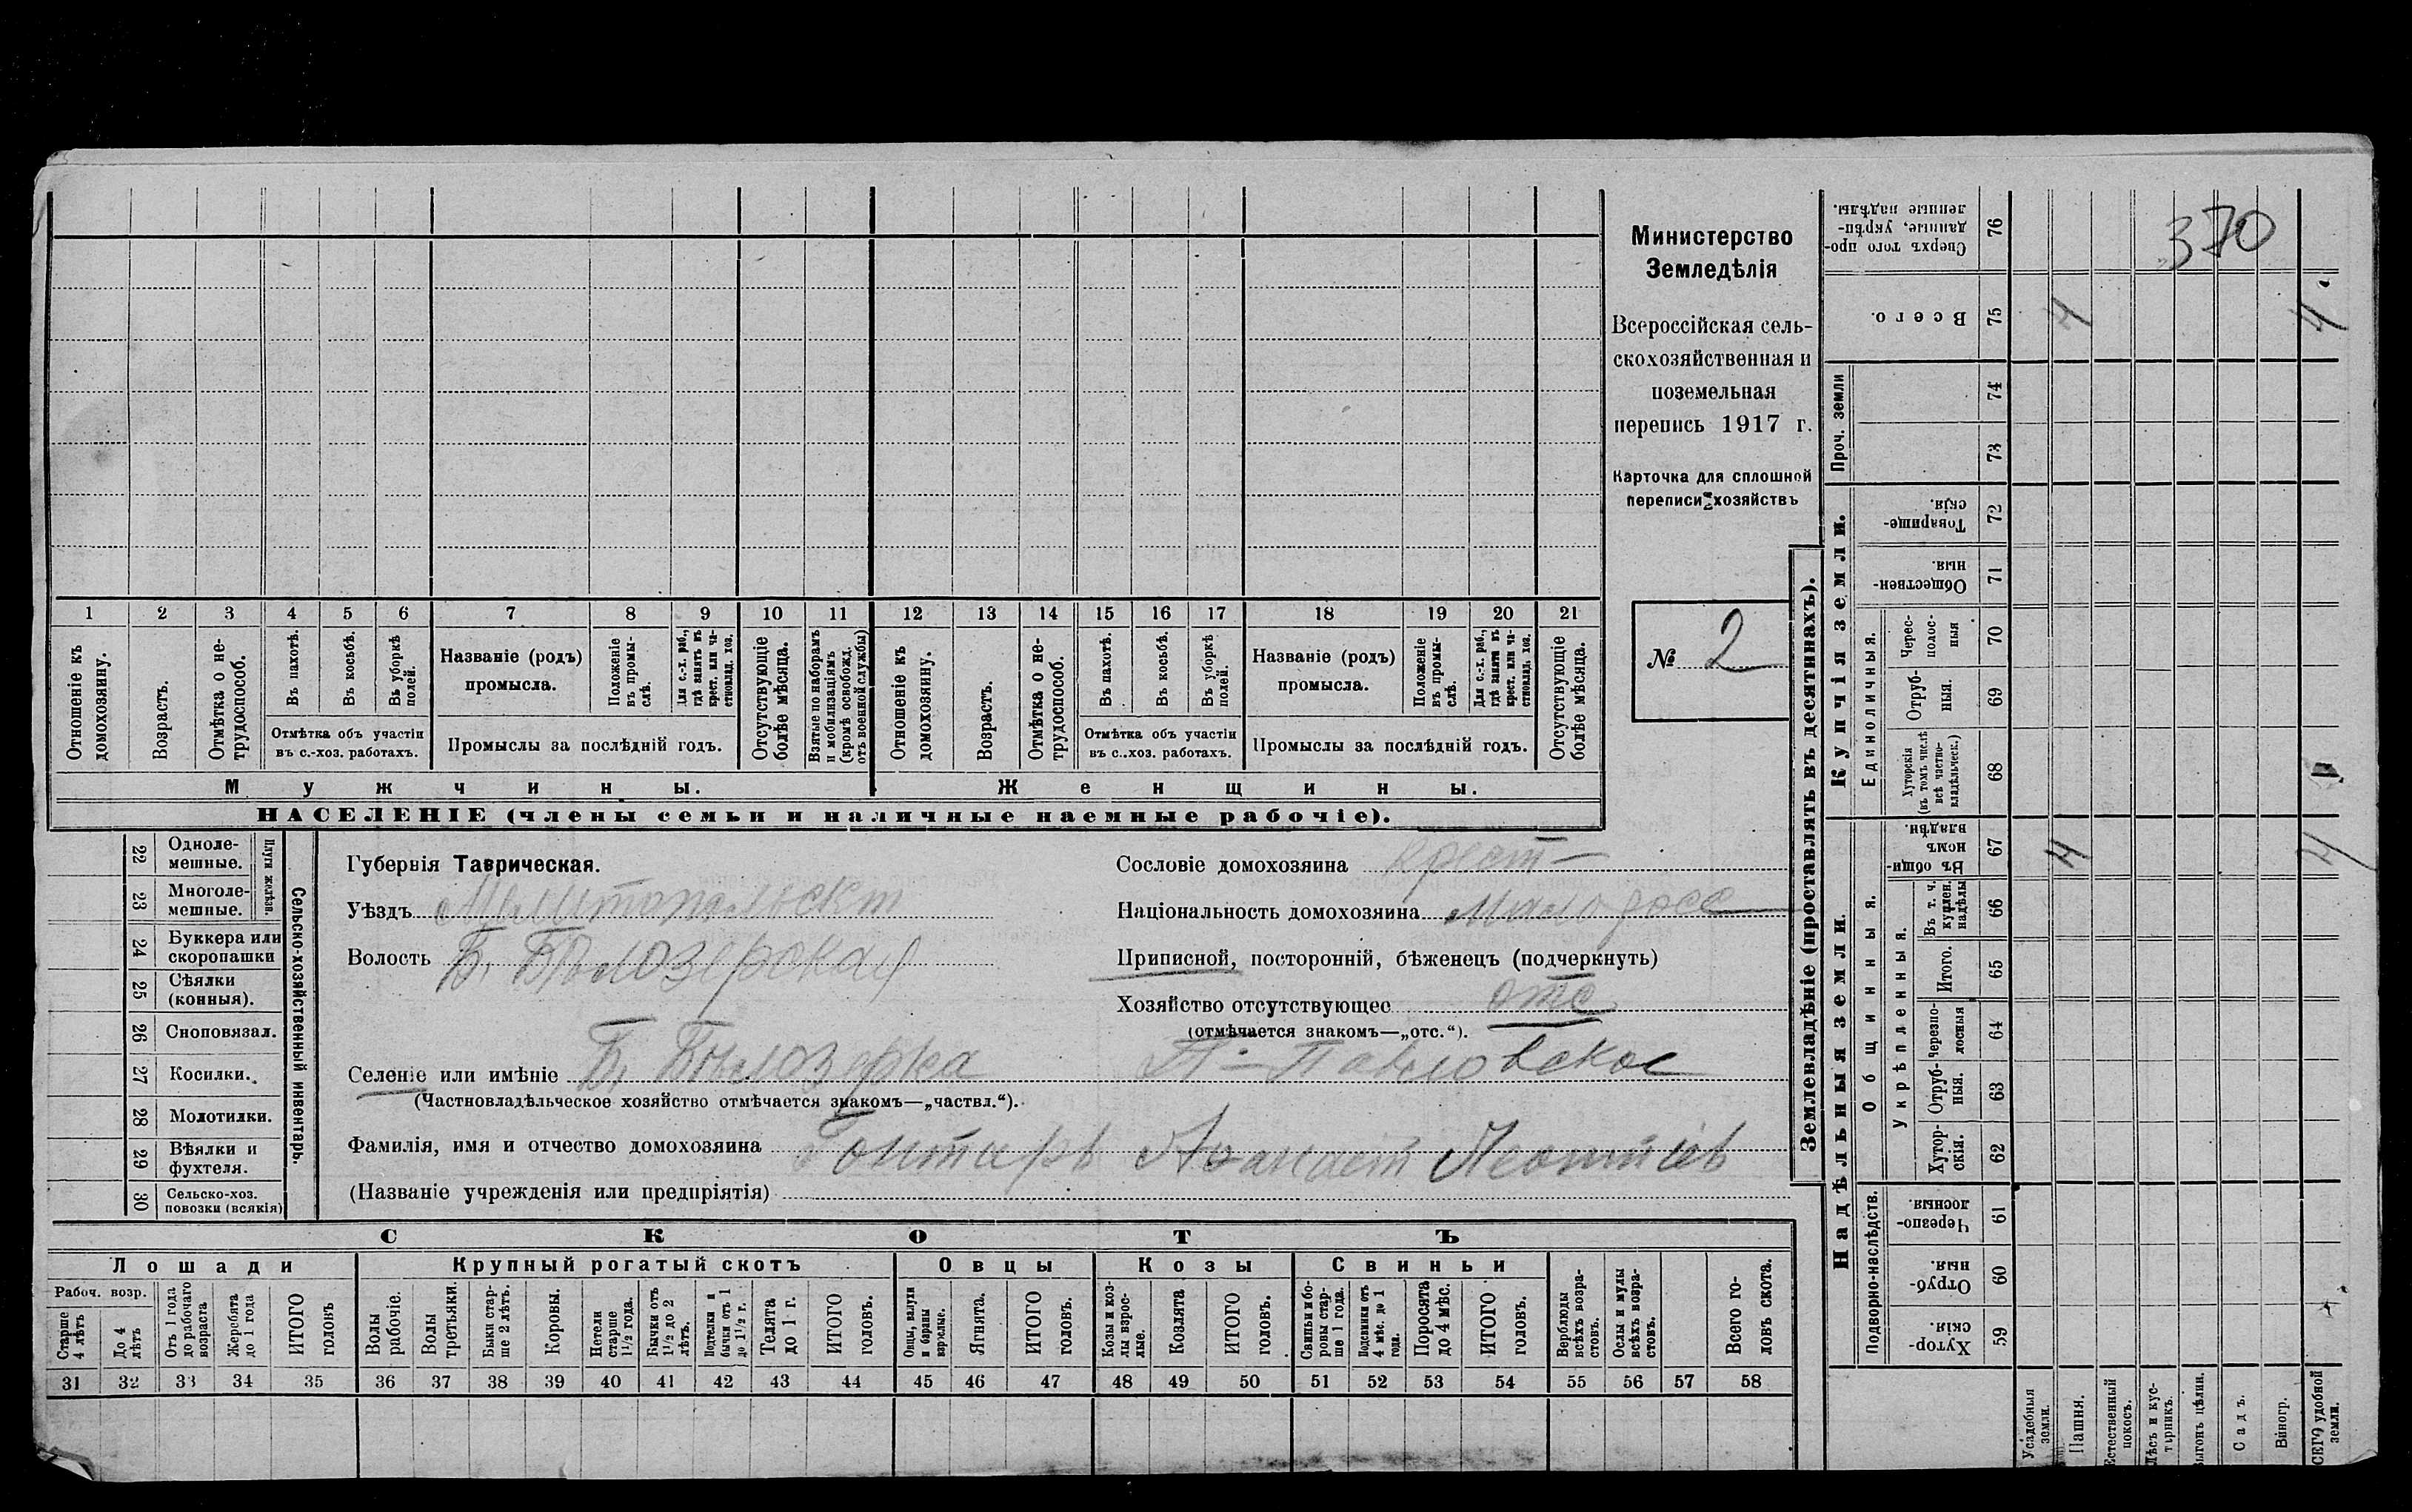 Министерство
Земледѣлія
Всероссійская сель-
скохозяйственная и
поземельная
перепись 1917 г.
Карточка для сплошной
переписи хозяйствъ
№ 2
370
1 2 3 4 5 6 7 8 9 10 11 12 13 14 15 16 17 18 19 20 21
Отношеніе къ домохозяину.
Возрастъ.
Отмѣтка о не-трудоспособ.
Въ пахотѣ.
Въ косьбѣ.
Въ уборкѣ полей.
Отмѣтка объ участіи
въ с.-хоз. работахъ.
Названіе (родъ)
промысла.
Положеніе въ промы-слѣ.
Для с.-х. раб., гдѣ занятъ въ крест. или ча-стновлад. хоз.
Промыслы за послѣдній годъ.
Отсутствующіе болѣе мѣсяца.
Взятые по наборамъ и мобилизаціямъ (кромѣ освобожд. отъ военной службы)
Отношеніе къ домохозяину.
Возрастъ.
Отмѣтка о не-трудоспособ.
Въ пахотѣ.
Въ косьбѣ.
Въ уборкѣ полей.
Отмѣтка объ участіи
въ с.-хоз. работахъ.
Названіе (родъ)
промысла.
Положеніе въ промы-слѣ.
Для с.-х. раб., гдѣ занята въ крест. или ча-стновлад. хоз.
Промыслы за послѣдній годъ.
Отсутствующіе болѣе мѣсяца.
Мужчины. Женщины.
НАСЕЛЕНІЕ (члены семьи и наличные наемные рабочіе).
Сельско-хозяйственный инвентарь.
Плуги желѣзн.
22 Одноле-мешные.
23 Многоле-мешные.
24 Буккера или скоропашки
25 Сѣялки (конныя).
26 Сноповязал.
27 Косилки.
28 Молотилки.
29 Вѣялки и фухтеля.
30 Сельско-хоз. повозки (всякія)
Губернія Таврическая.
Уѣздъ Мелитопольскт
Волость Б. Бѣлозерская
Селеніе или имѣніе Б. Бѣлозерка П-Павловское
(Частновладѣльческое хозяйство отмѣчается знакомъ—„частвл.“).
Фамилія, имя и отчество домохозяина Гонтарь Афанасій Леонтіев
(Названіе учрежденія или предпріятія)
Сословіе домохозяина крест
Національность домохозяина малоросс
Приписной, посторонній, бѣженецъ (подчеркнуть)
Хозяйство отсутствующее отс
(отмѣчается знакомъ—„отс.“).
СКОТЪ
Лошади Крупный рогатый скотъ Овцы Козы Свиньи
Рабоч. возр.
Старше 4 лѣтъ
До 4 лѣтъ
Отъ 1 года до рабочаго возраста
Жеребята до 1 года
ИТОГО головъ
Волы рабочіе.
Волы третьяки.
Быки стар-ше 2 лѣтъ.
Коровы.
Нетели старше 1½ года.
Бычки отъ 1½ до 2 лѣтъ.
Подтелки и бычки отъ 1 до 1½ г.
Телята до 1 г.
ИТОГО головъ.
Овцы, валухи и бараны взрослые.
Ягнята.
ИТОГО головъ.
Козы и коз-лы взрос-лые.
Козлята
ИТОГО головъ.
Свиньи и бо-ровы стар-ше 1 года.
Подсвинки отъ 4 мѣс. до 1 года.
Поросята до 4 мѣс.
ИТОГО головъ.
Верблюды всѣхъ возра-стовъ.
Ослы и мулы всѣхъ возра-стовъ.
Всего го-ловъ скота.
31 32 33 34 35 36 37 38 39 40 41 42 43 44 45 46 47 48 49 50 51 52 53 54 55 56 57 58
Землевладѣніе (проставлять въ десятинахъ).
Надѣльныя земли.
Купчія земли.
Проч. земли
Подворно-наслѣдств.
Общинныя.
Укрѣпленныя.
Единоличныя.
Хутор-скія. 59
Отруб-ныя. 60
Черезпо-лосныя. 61
Хутор-скія. 62
Отруб-ныя. 63
Черезпо-лосныя 64
Итого. 65
Въ т. ч. куплен. надѣлы 66
Въ общи-номъ владѣн. 67 4 4
Хуторскія (въ томъ числѣ всѣ частно-владѣльческ.) 68
Отруб-ныя. 69
Черес-полос-ныя 70
Обществен-ныя. 71
Товарище-скія. 72
73
74
Всего. 75 4 4
Сверхъ того про-данные, укрѣп-ленные надѣлы. 76
Усадебныя земли.
Пашня.
Естественный покосъ.
Лѣсъ и кус-тарникъ.
Выгонъ цѣлин.
Садъ.
Виногр.
ВСЕГО удобной земли.